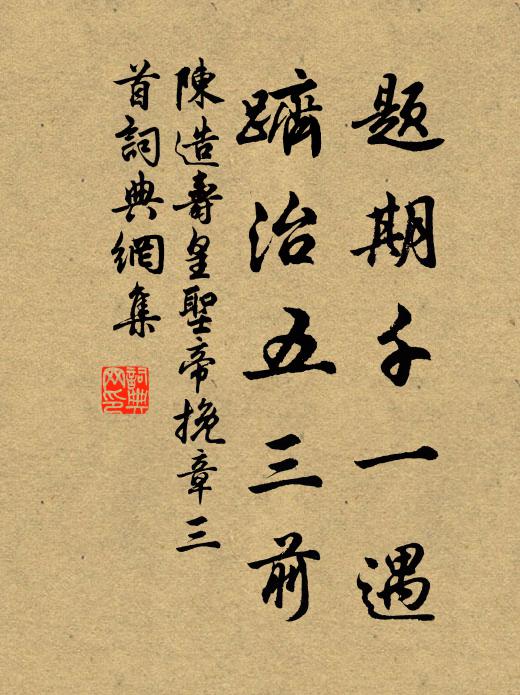 题期千一遇
躋治五三前
陳造壽皇聖帝挽章三
首詞典網集
詞典
网印